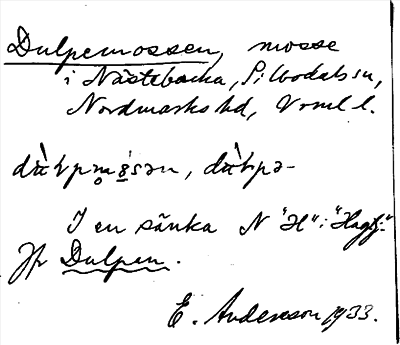 Dulpemossen, mosse
i Nästebacka, Silbodals sn,
Nordmarks hd, Vrml l.
I en sänka N "H" i "Hagf."
Jfr Dulpen.
E. Andersson 1933.